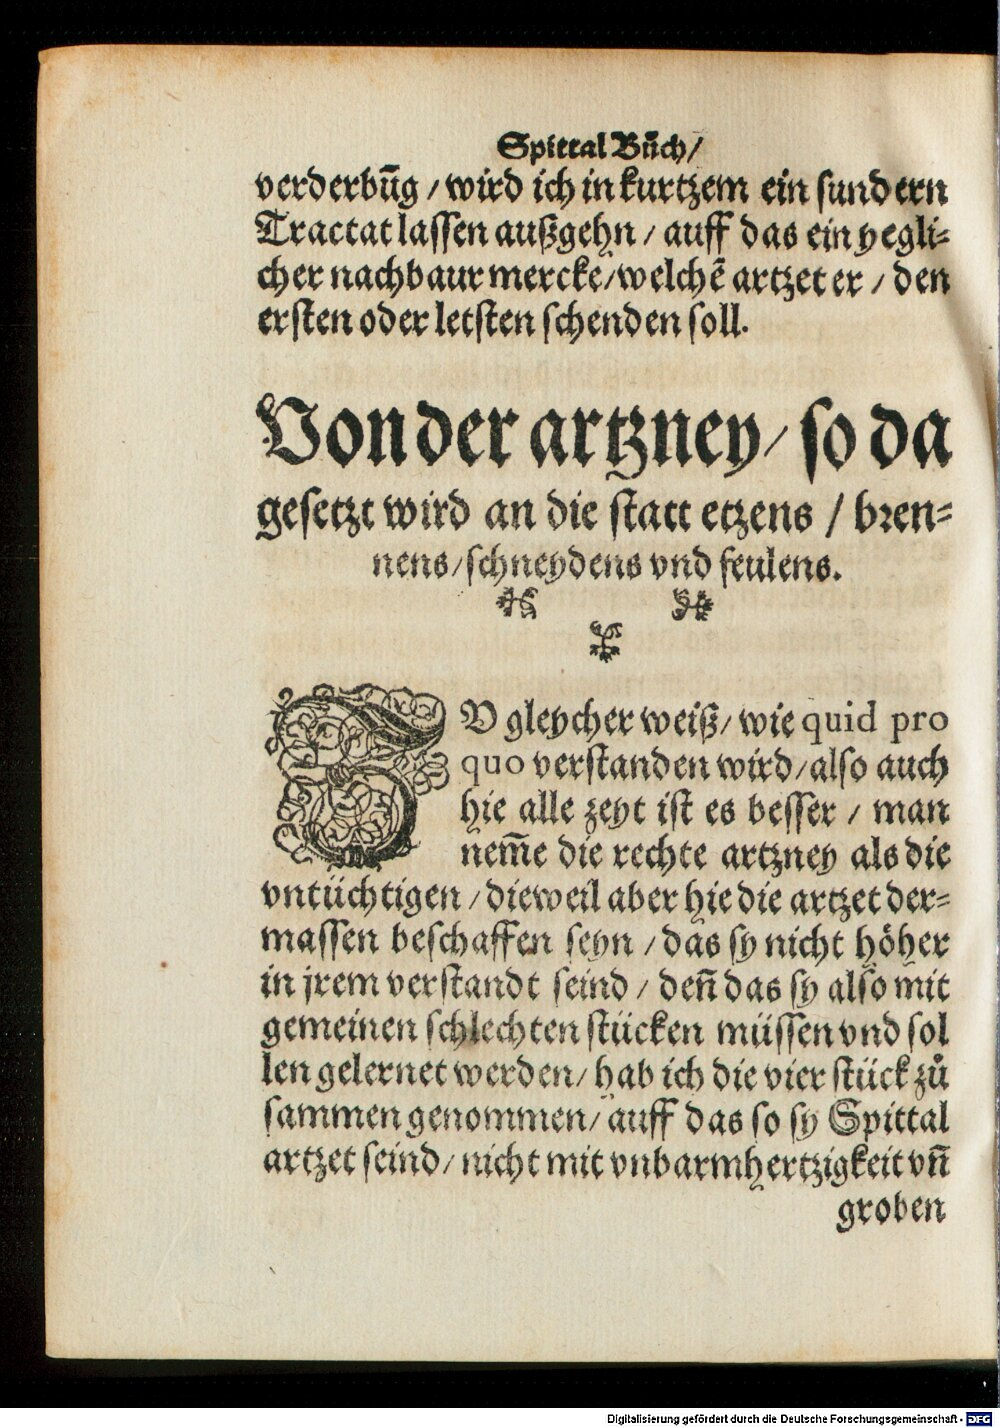 Spittal Bůch/
verderbūg / wird ich in kurtzem ein sundern
Tractat lassen außgehn / auff das ein yegli-
cher nachbaur mercke/welchē artzet er / den
ersten oder letsten schenden soll.
Von der artzney/ so da
gesetzt wird an die statt etzens / bren-
nens/schneydens vnd feulens.
ZU gleycher weiß/ wie quid pro
quo verstanden wird/also auch
hie alle zeyt ist es besser / man
nem̄e die rechte artzney als die
vntüchtigen / dieweil aber hie die artzet der-
massen beschaffen seyn / das sy nicht höher
in jrem verstandt seind / den̄ das sy also mit
gemeinen schlechten stücken müssen vnd sol
len gelernet werden/ hab ich die vier stück zů
sammen genommen/ auff das so sy Spittal
artzet seind/ nicht mit vnbarmhertzigkeit vn̄
groben
Digitalisierung gefördert durch die Deutsche Forschungsgemeinschaft - DFG